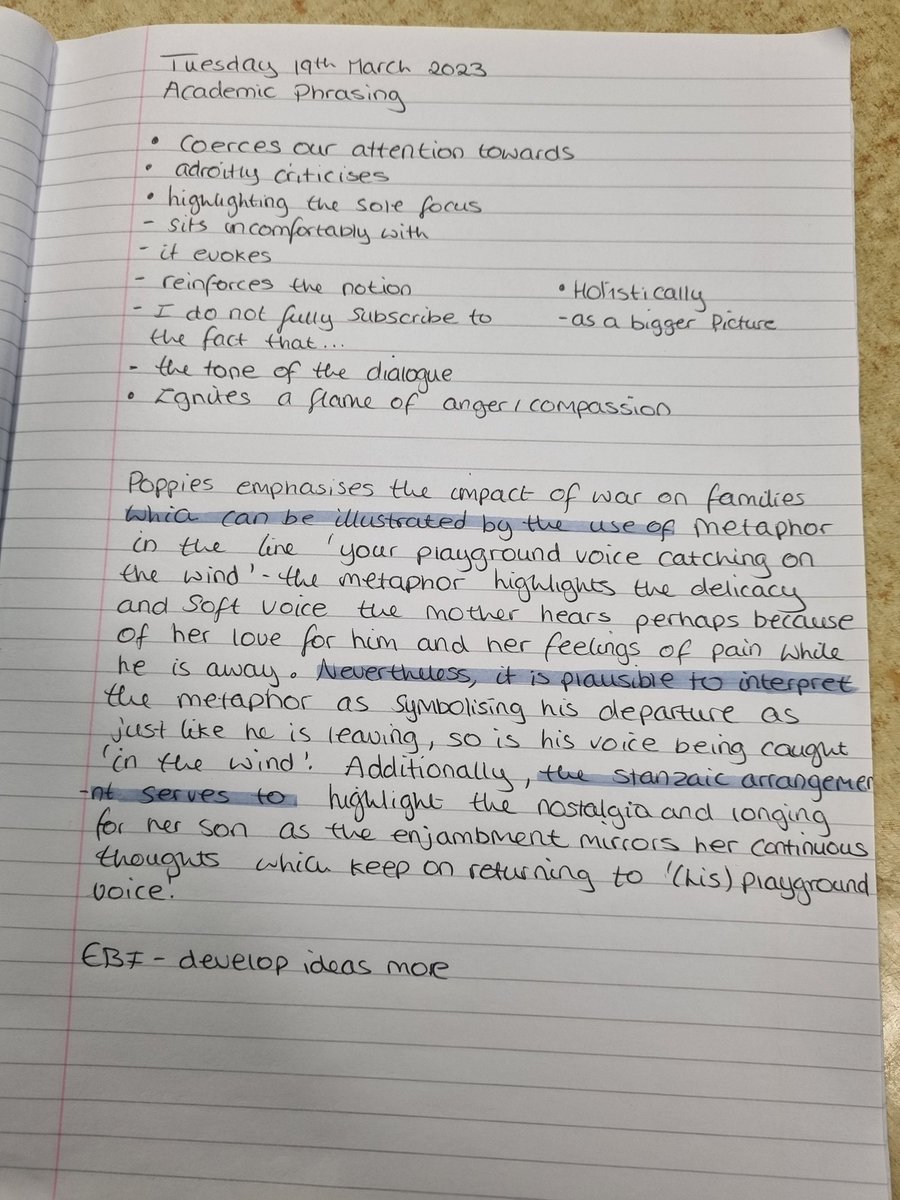 Tuesday 19th March 2023
Academic Phrasing
• Coerces our attention towards
• adroitly criticises
• highlighting the sole focus
- sits uncomfortably with
- it evokes
- reinforces the notion
- I do not fully subscribe to
the fact that...
- the tone of the dialogue
• Ignites a flame of anger/compassion
• Holistically
- as a bigger picture
Poppies emphasises the impact of war on families
which can be illustrated by the use of metaphor
in the line 'your playground voice catching on
the wind' - the metaphor highlights the delicacy
and soft voice the mother hears perhaps because
of her love for him and her feelings of pain while
he is away. Nevertheless, it is plausible to interpret
the metaphor as symbolising his departure as
just like he is leaving, so is his voice being caught
'in the wind'. Additionally, the stanzaic arrangeme
-nt serves to highlight the nostalgia and longing
for her son as the enjambment mirrors her continuous
thoughts which keep on returning to '(his) playground
voice'.
EBI - develop ideas more